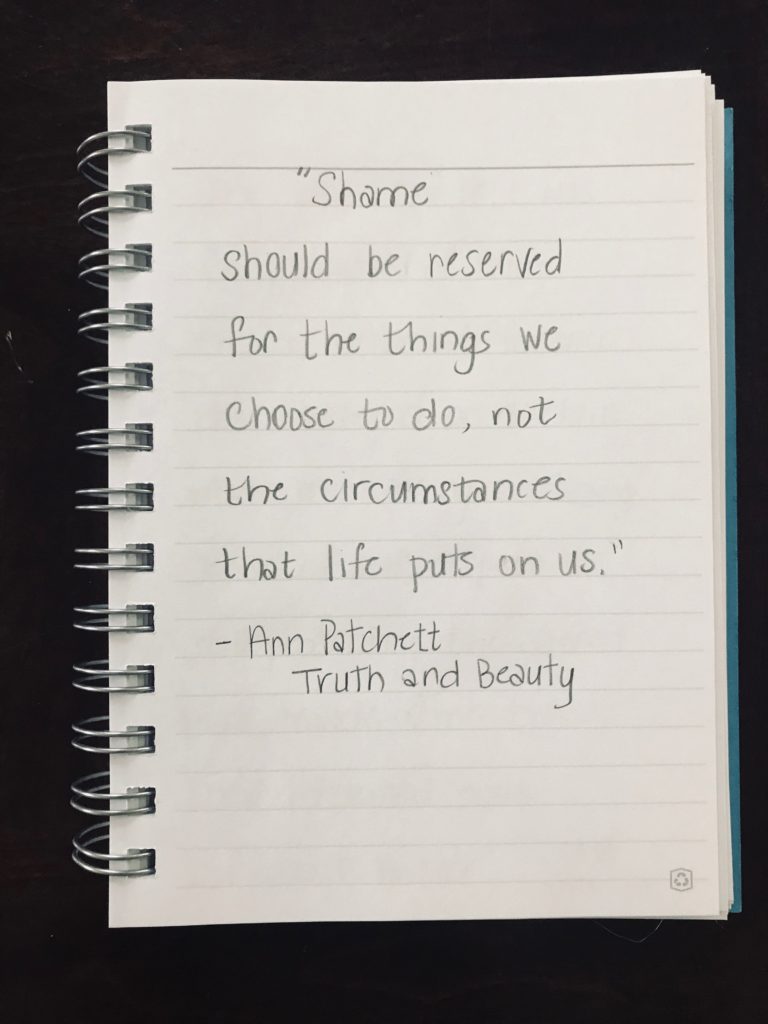 "Shame
should be reserved
for the things we
choose to do, not
the circumstances
that life puts on us."
- Ann Patchett
Truth and Beauty